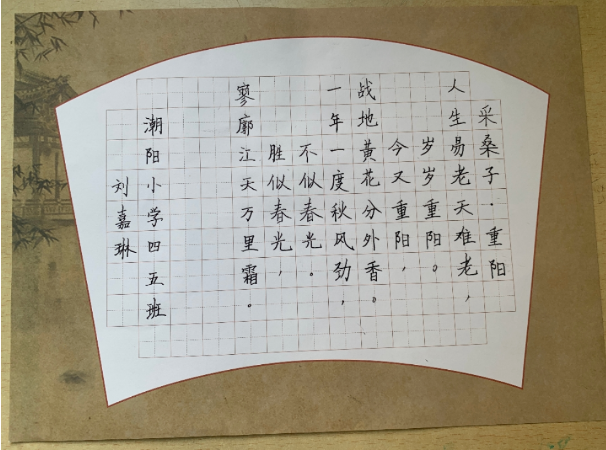 采桑子·重阳
人生易老天难老，
岁岁重阳。
今又重阳，
战地黄花分外香。
一年一度秋风劲，
不似春光。
胜似春光，
寥廓江天万里霜。
潮阳小学四五班
刘嘉琳